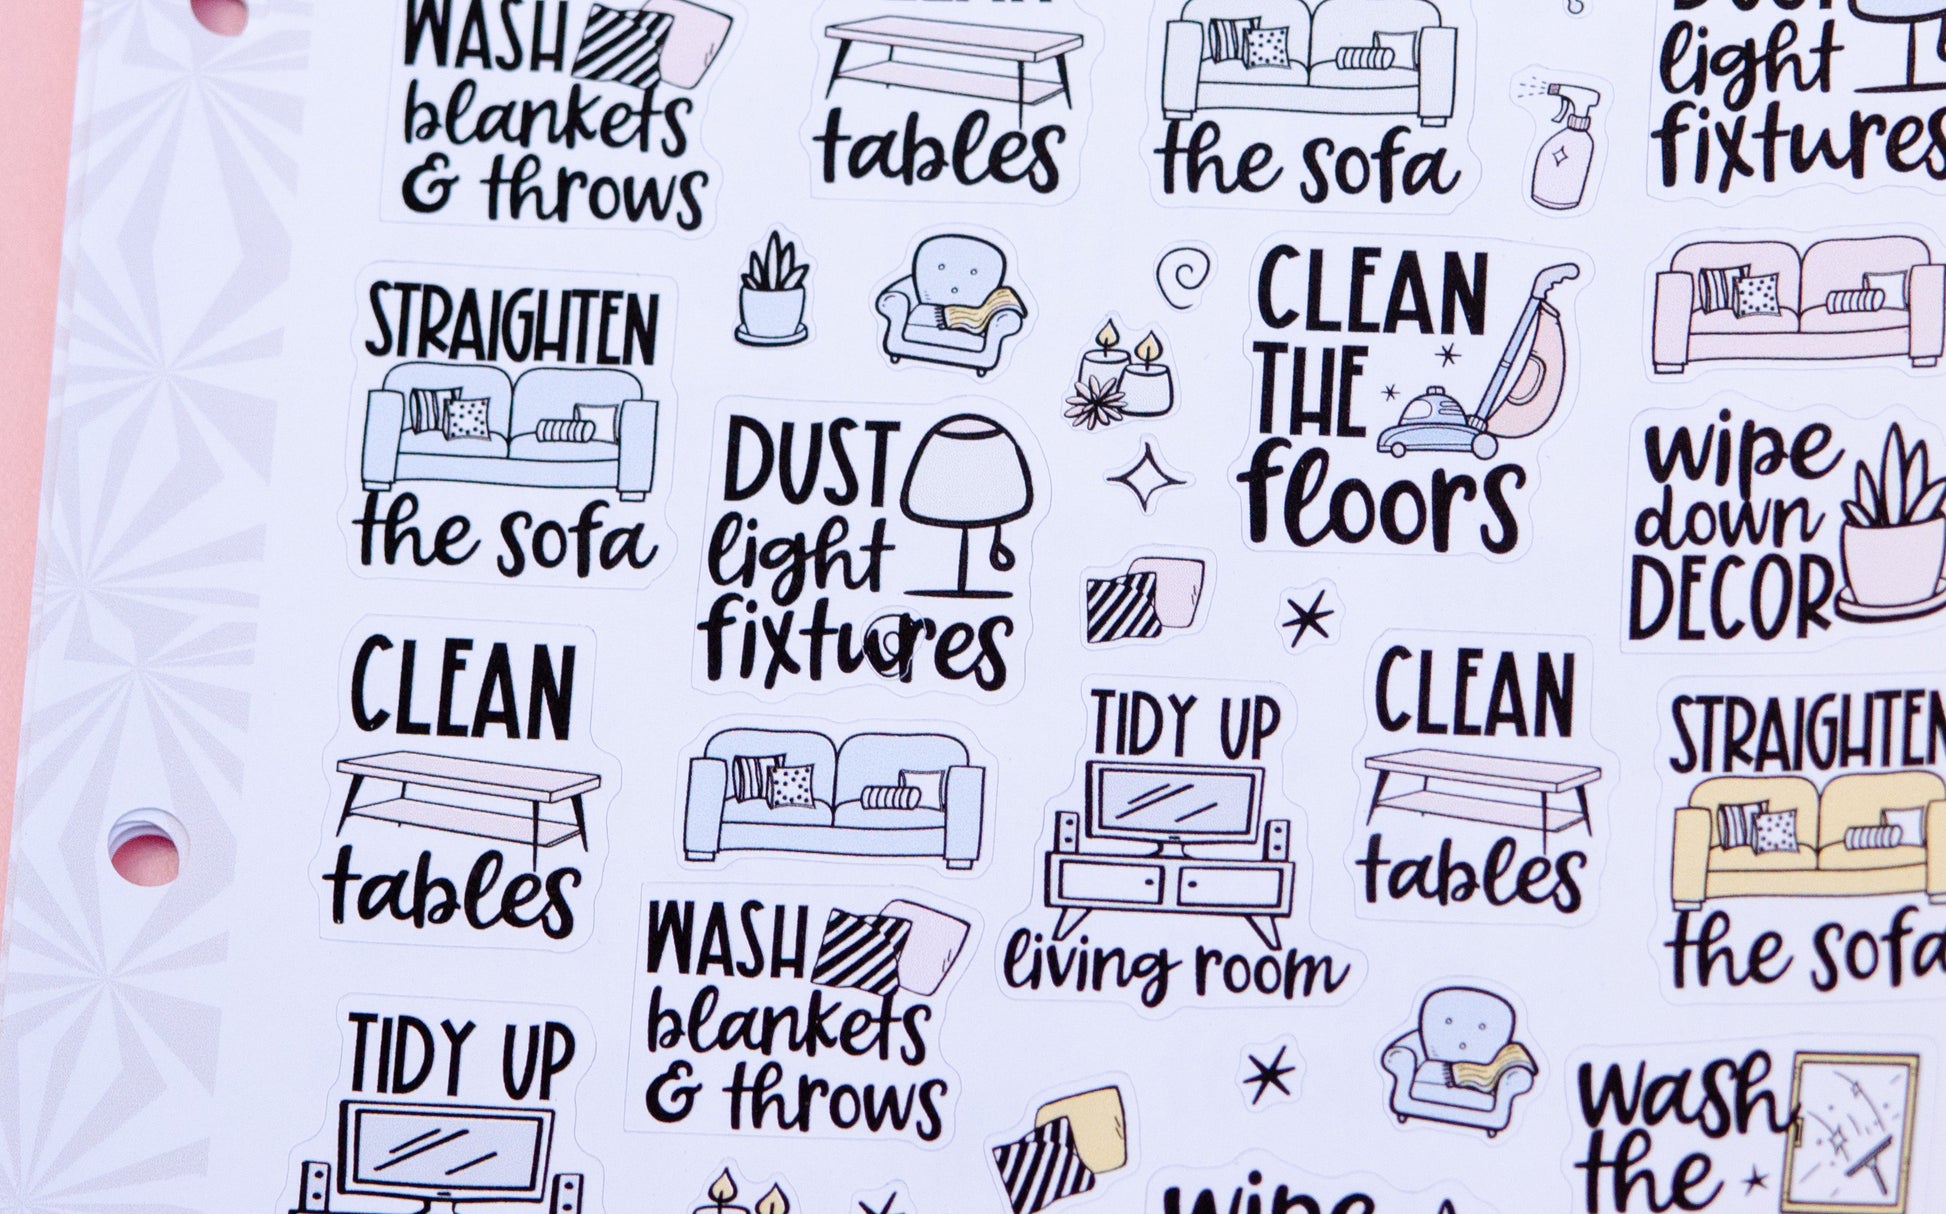 WASH
blankets
& throws
tables
the sofa
light
fixtures
STRAIGHTEN
the sofa
DUST
light
fixtures
CLEAN
THE
floors
wipe
down
DECOR
CLEAN
tables
TIDY UP
living room
CLEAN
tables
STRAIGHTEN
the sofa
WASH
blankets
& throws
TIDY UP
wash
the
wipe